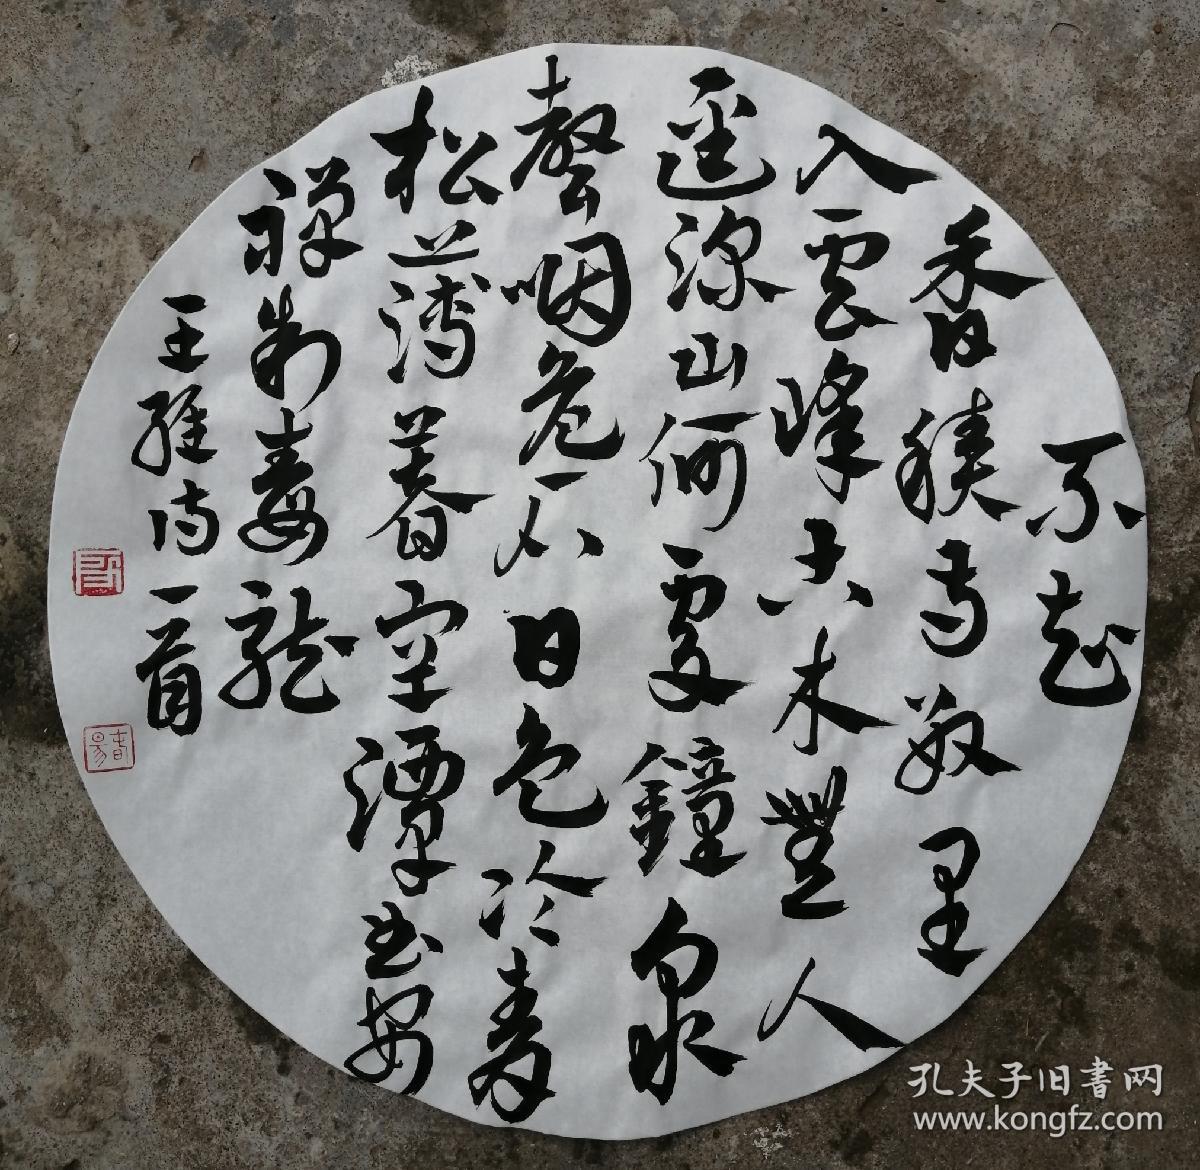 不知
香積寺數里
入雲峰古木無人
逕深山何處鐘泉
聲咽危石日色冷青
松薄暮空潭曲安
禪制毒龍
王維詩一首
孔夫子旧書网
www.kongfz.com